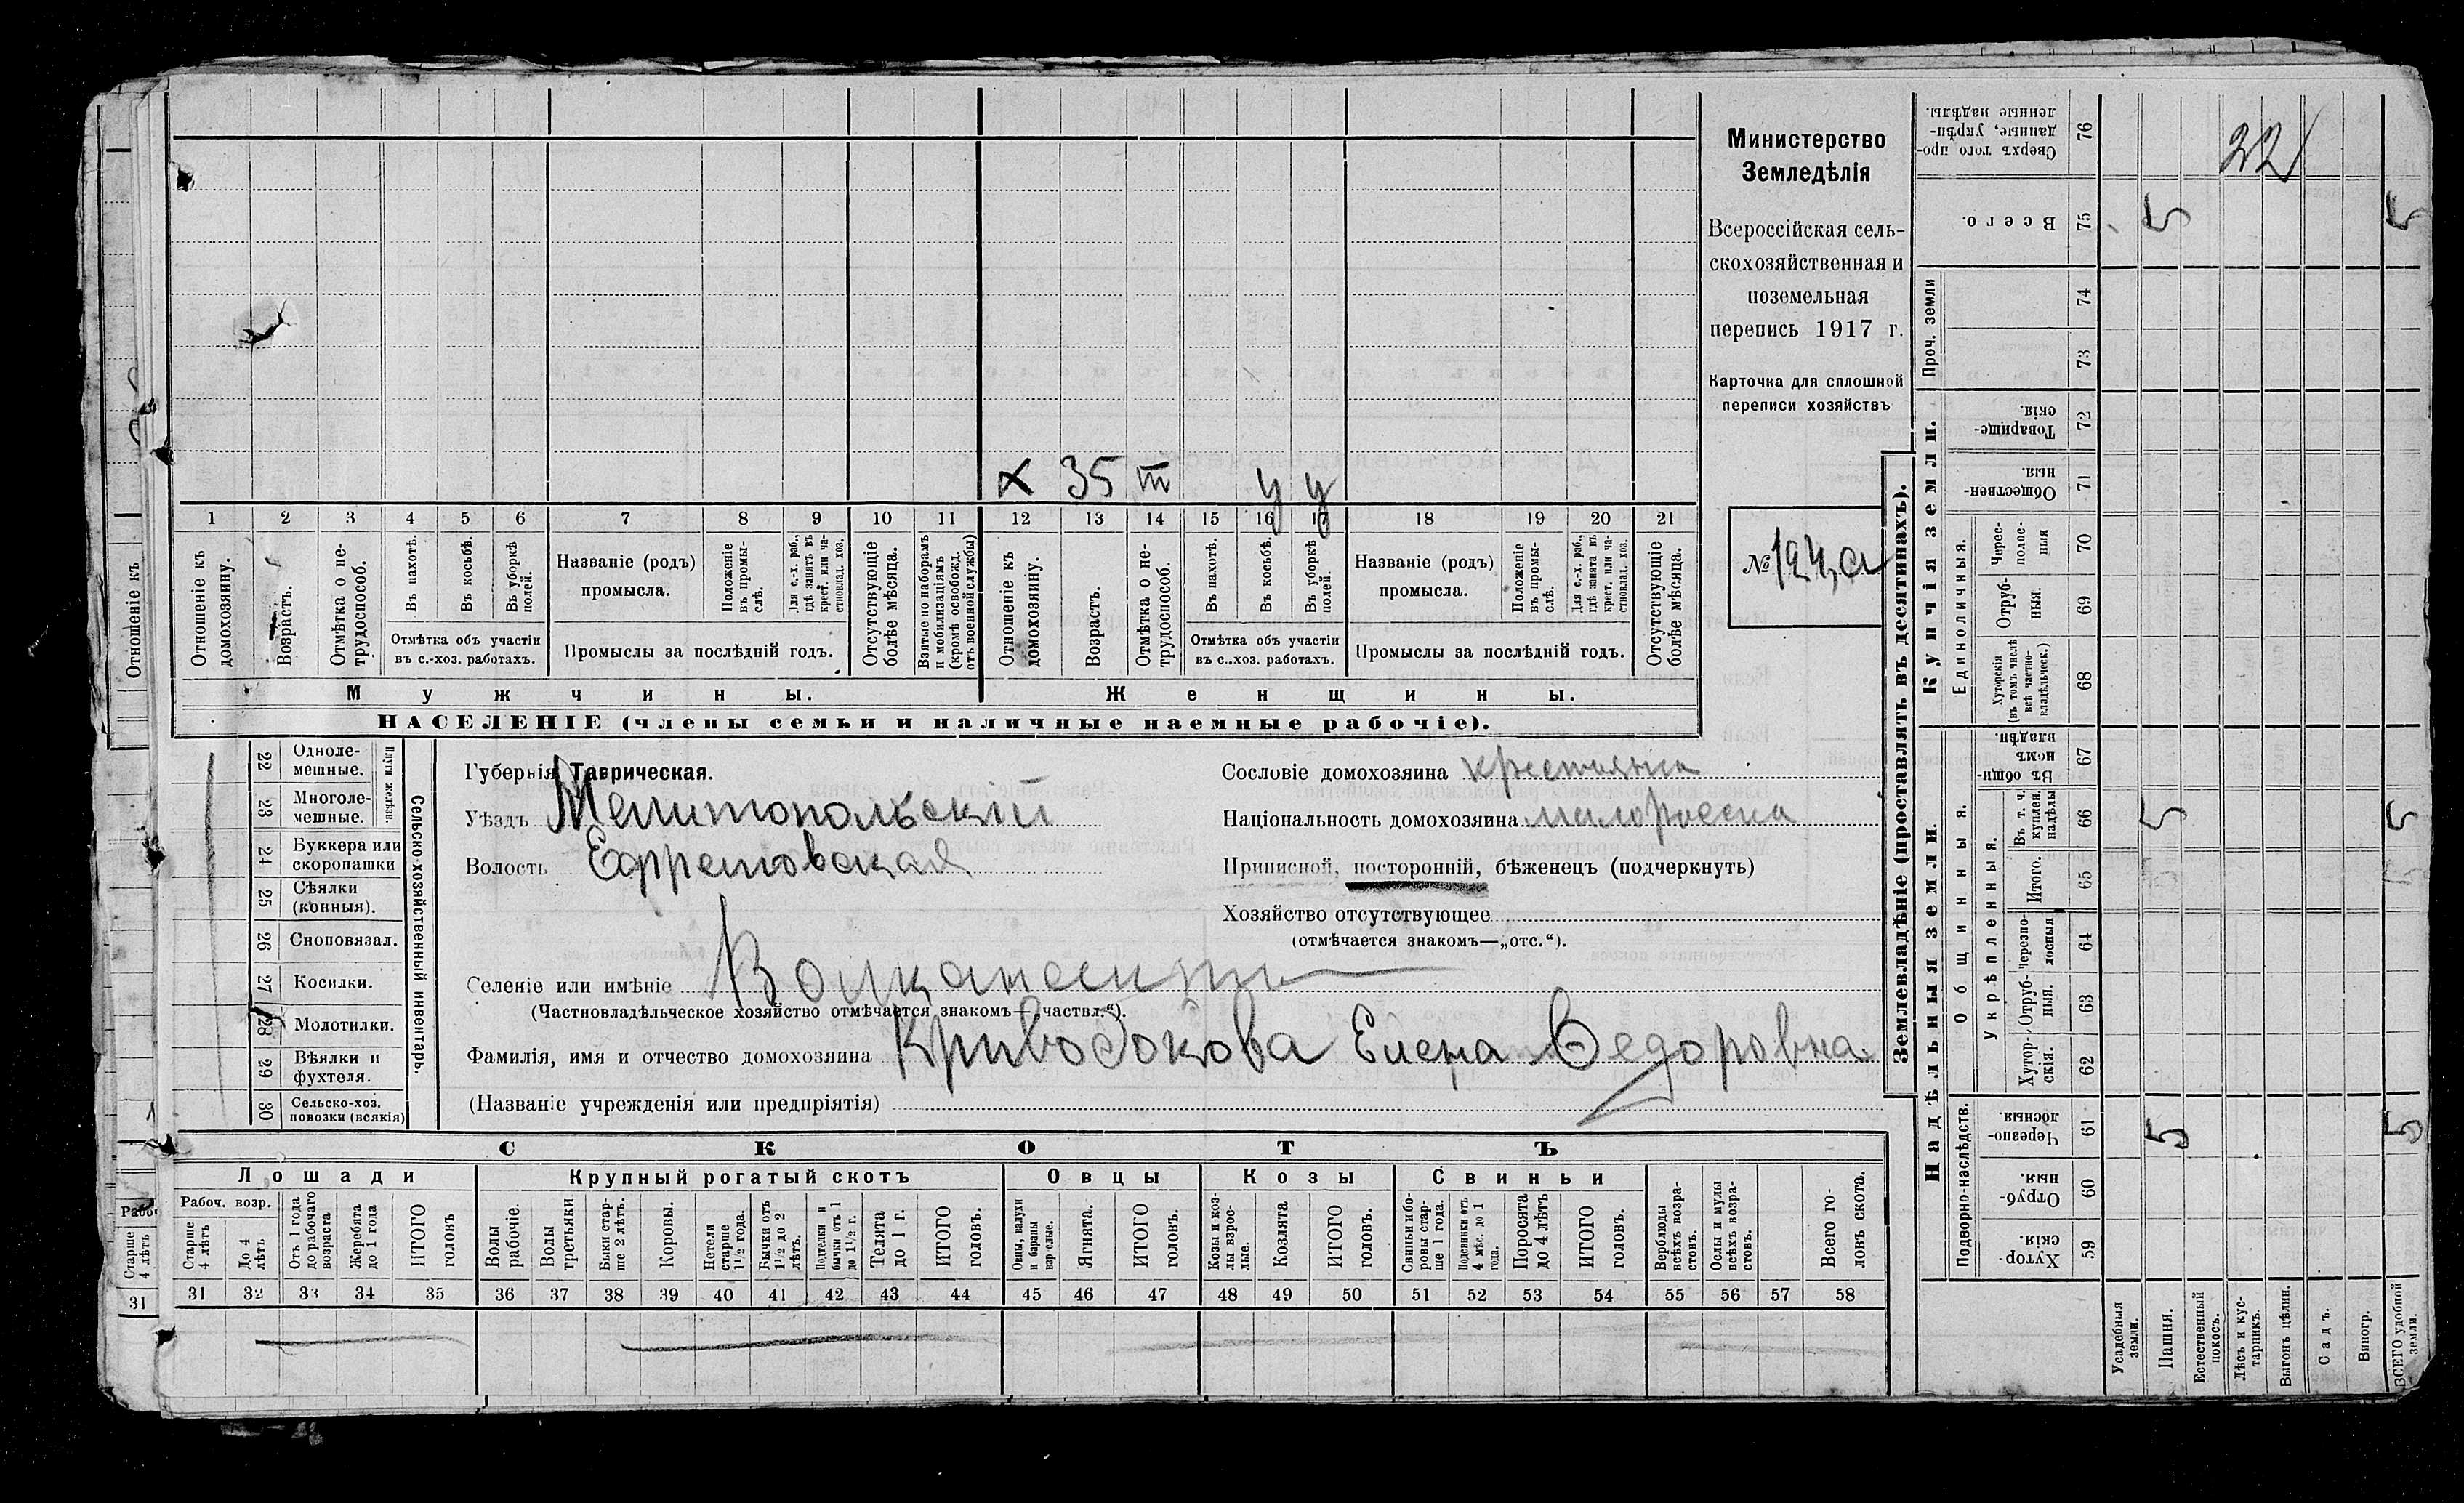 Министерство
Земледѣлія
Всероссійская сель-
скохозяйственная и
поземельная
перепись 1917 г.
Карточка для сплошной
переписи хозяйствъ
№
х 35 у у
1 2 3 4 5 6 7 8 9 10 11 12 13 14 15 16 17 18 19 20 21
Отношеніе къ домохозяину.
Возрастъ.
Отмѣтка о не-
трудоспособ.
Въ пахотѣ.
Въ косьбѣ.
Въ уборкѣ полей.
Отмѣтка объ участіи
въ с.-хоз. работахъ.
Названіе (родъ)
промысла.
Положеніе
въ промы-
слѣ.
Для с.-х. раб.,
гдѣ занятъ въ
крест. или ча-
стновлад. хоз.
Промыслы за послѣдній годъ.
Отсутствующіе
болѣе мѣсяца.
Взятые по наборамъ
и мобилизаціямъ
(кромѣ освобожд.
отъ военной службы)
Отношеніе къ
домохозяину.
Возрастъ.
Отмѣтка о не-
трудоспособ.
Въ пахотѣ.
Въ косьбѣ.
Въ уборкѣ
полей.
Отмѣтка объ участіи
въ с..хоз. работахъ.
Названіе (родъ)
промысла.
Положеніе
въ промы-
слѣ.
Для с.-х. раб.,
гдѣ занята въ
крест. или ча-
стновлад. хоз.
Промыслы за послѣдній годъ.
Отсутствующіе
болѣе мѣсяца.
Мужчины.
Женщины.
НАСЕЛЕНІЕ (члены семьи и наличные наемные рабочіе).
22 Одноле-
мешные.
23 Многоле-
мешные.
Плуги желѣзн.
24 Буккера или
скоропашки
25 Сѣялки
(конныя).
26 Сноповязал.
27 Косилки.
28 Молотилки.
29 Вѣялки и
фухтеля.
30 Сельско-хоз.
повозки (всякія)
Сельско-хозяйственный инвентарь.
Губернія Таврическая.
Уѣздъ Мелитопольскій
Волость Ефремовская
Сословіе домохозяина крестьянка
Національность домохозяина малоросска
Приписной, посторонній, бѣженецъ (подчеркнуть)
Хозяйство отсутствующее
(отмѣчается знакомъ—„отс.“).
Селеніе или имѣніе
(Частновладѣльческое хозяйство отмѣчается знакомъ—„частвл.“).
Фамилія, имя и отчество домохозяина Кривобокова Елена Ѳедоровна
(Названіе учрежденія или предпріятія)
СКОТЪ
Лошади
Крупный рогатый скотъ
Овцы
Козы
Свиньи
Рабоч. возр.
Старше
4 лѣтъ
До 4
лѣтъ
Отъ 1 года
до рабочаго
возраста
Жеребята
до 1 года
ИТОГО
головъ
Волы
рабочіе.
Волы
третьяки
Быки стар-
ше 2 лѣтъ.
Коровы.
Нетели
старше
1½ года.
Бычки отъ
1½ до 2
лѣтъ.
Подтелки и
бычки отъ 1
до 1½ г.
Телята
до 1 г.
ИТОГО
головъ.
Овцы, валухи
и бараны
взрослые.
Ягнята.
ИТОГО
головъ.
Козы и коз-
лы взрос-
лые.
Козлята
ИТОГО
головъ.
Свиньи и бо-
ровы стар-
ше 1 года.
Подсвинки отъ
4 мѣс. до 1
года.
Поросята
до 4 лѣтъ
ИТОГО
головъ.
Верблюды
всѣхъ возра-
стовъ.
Ослы и мулы
всѣхъ возра-
стовъ.
Всего го-
ловъ скота.
31 32 33 34 35 36 37 38 39 40 41 42 43 44 45 46 47 48 49 50 51 52 53 54 55 56 57 58
Землевладѣніе (проставлять въ десятинахъ).
Надѣльныя земли.
Купчія земли.
Проч. земли
Сверхъ того про-
данные, укрѣп-
ленные надѣлы.
76
22
Всего.
75
5 5
74
73
Товарище-
скія.
72
Обществен-
ныя.
71
Единоличныя.
Черес-
полос-
ныя
70
Отруб-
ныя.
69
Хуторскія
(въ томъ числѣ
всѣ частно-
владѣльческ.)
68
Общинныя.
Въ общин-
номъ
владѣн.
67
Укрѣпленныя.
Въ т. ч.
куплен.
надѣлы
66
5 5
Итого.
65
Черезпо-
лосныя
64
Отруб-
ныя.
63
Хутор-
скія.
62
Подворно-наслѣдств.
Черезпо-
лосныя
61
5 5
Отруб-
ныя.
60
Хутор-
скія.
59
Усадебная
земли.
Пашня.
Естественный
покосъ.
Лѣсъ и кус-
тарникъ.
Выгонъ цѣлин.
Садъ.
Виногр.
ВСЕГО удобной
земли.
Отношеніе къ
Рабоч
Старше
4 лѣтъ
31